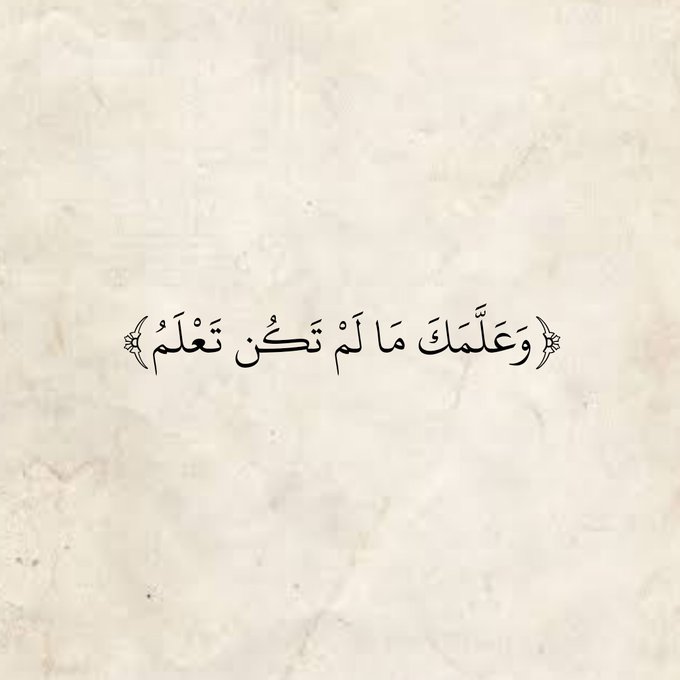 ﴿وَعَلَّمَكَ مَا لَمْ تَكُن تَعْلَمُ﴾